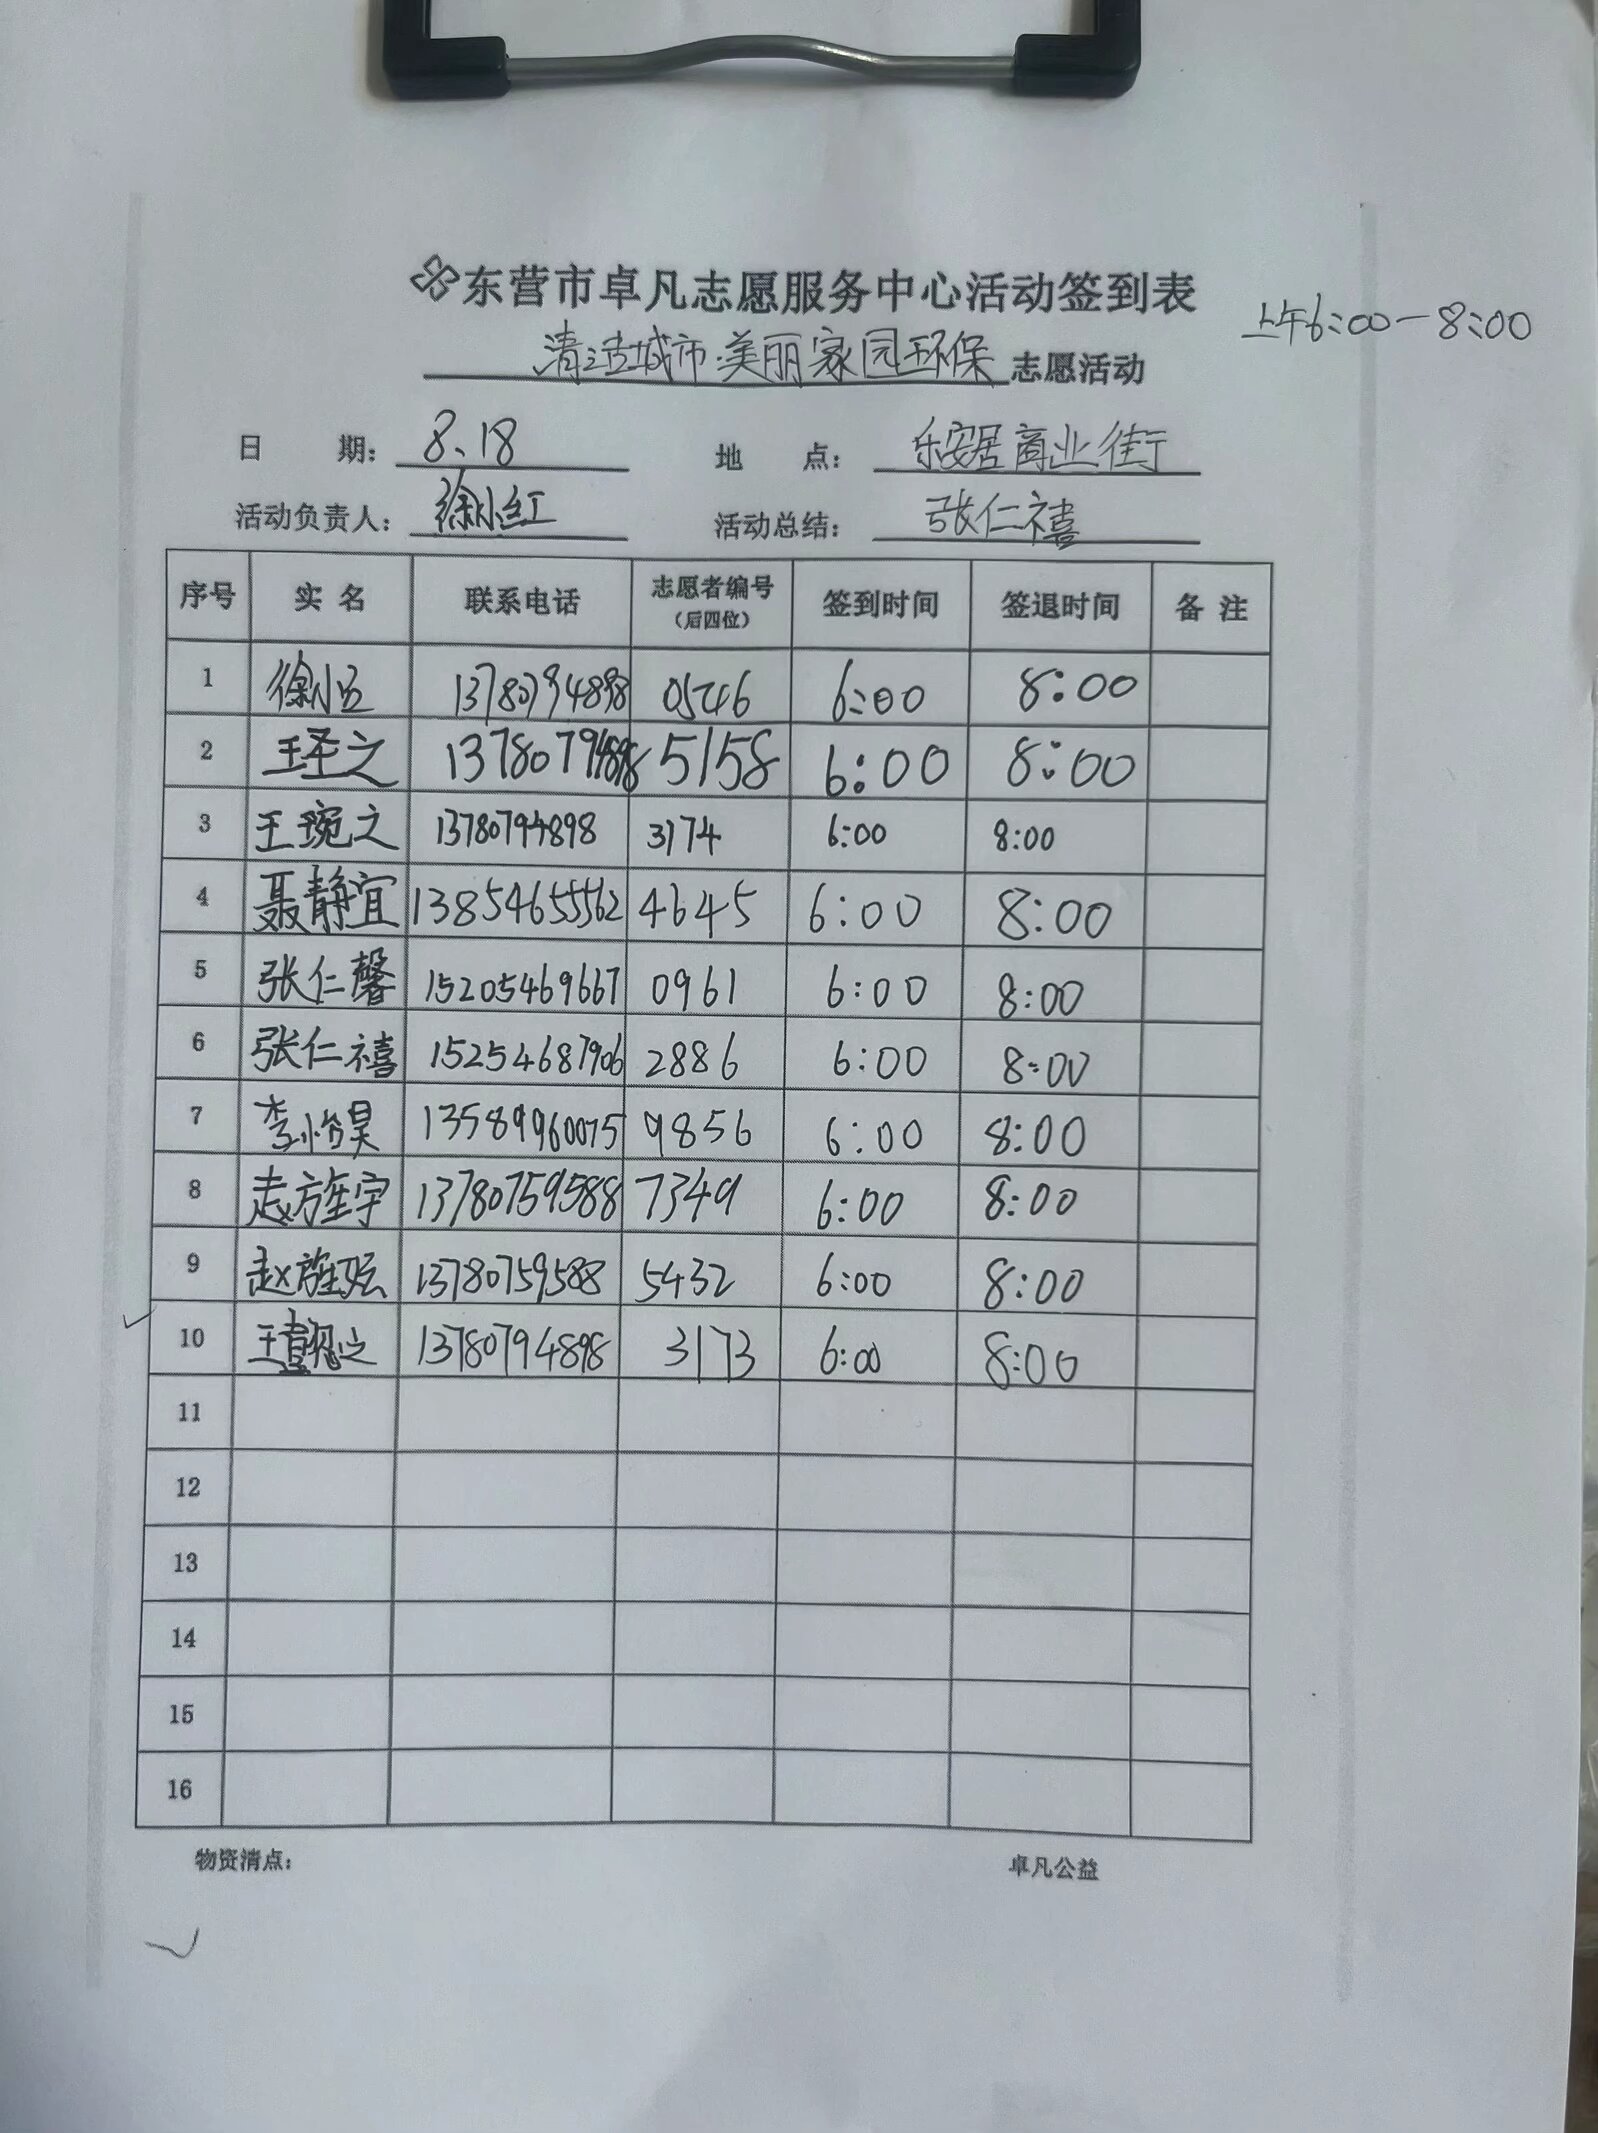 东营市卓凡志愿服务中心活动签到表
上午6:00-8:00
清洁城市.美丽家园环保 志愿活动
日 期: 8、18 地 点: 乐安居商业街
活动负责人: 徐小红 活动总结: 张仁禧
序号 实 名 联系电话 志愿者编号(后四位) 签到时间 签退时间 备 注
1 徐小红 13780794898 05746 6:00 8:00
2 王圣之 13780794898 5158 6:00 8:00
3 王琬之 13780794898 3174 6:00 8:00
4 聂静宜 13854655562 4645 6:00 8:00
5 张仁馨 15205469667 0961 6:00 8:00
6 张仁禧 15254687906 2886 6:00 8:00
7 李怡昊 13589960075 9856 6:00 8:00
8 赵旌宇 13780759588 7349 6:00 8:00
9 赵旌 13780759588 5432 6:00 8:00
10 王 之 13780794898 3173 6:00 8:00
11
12
13
14
15
16
物资清点: 卓凡公益